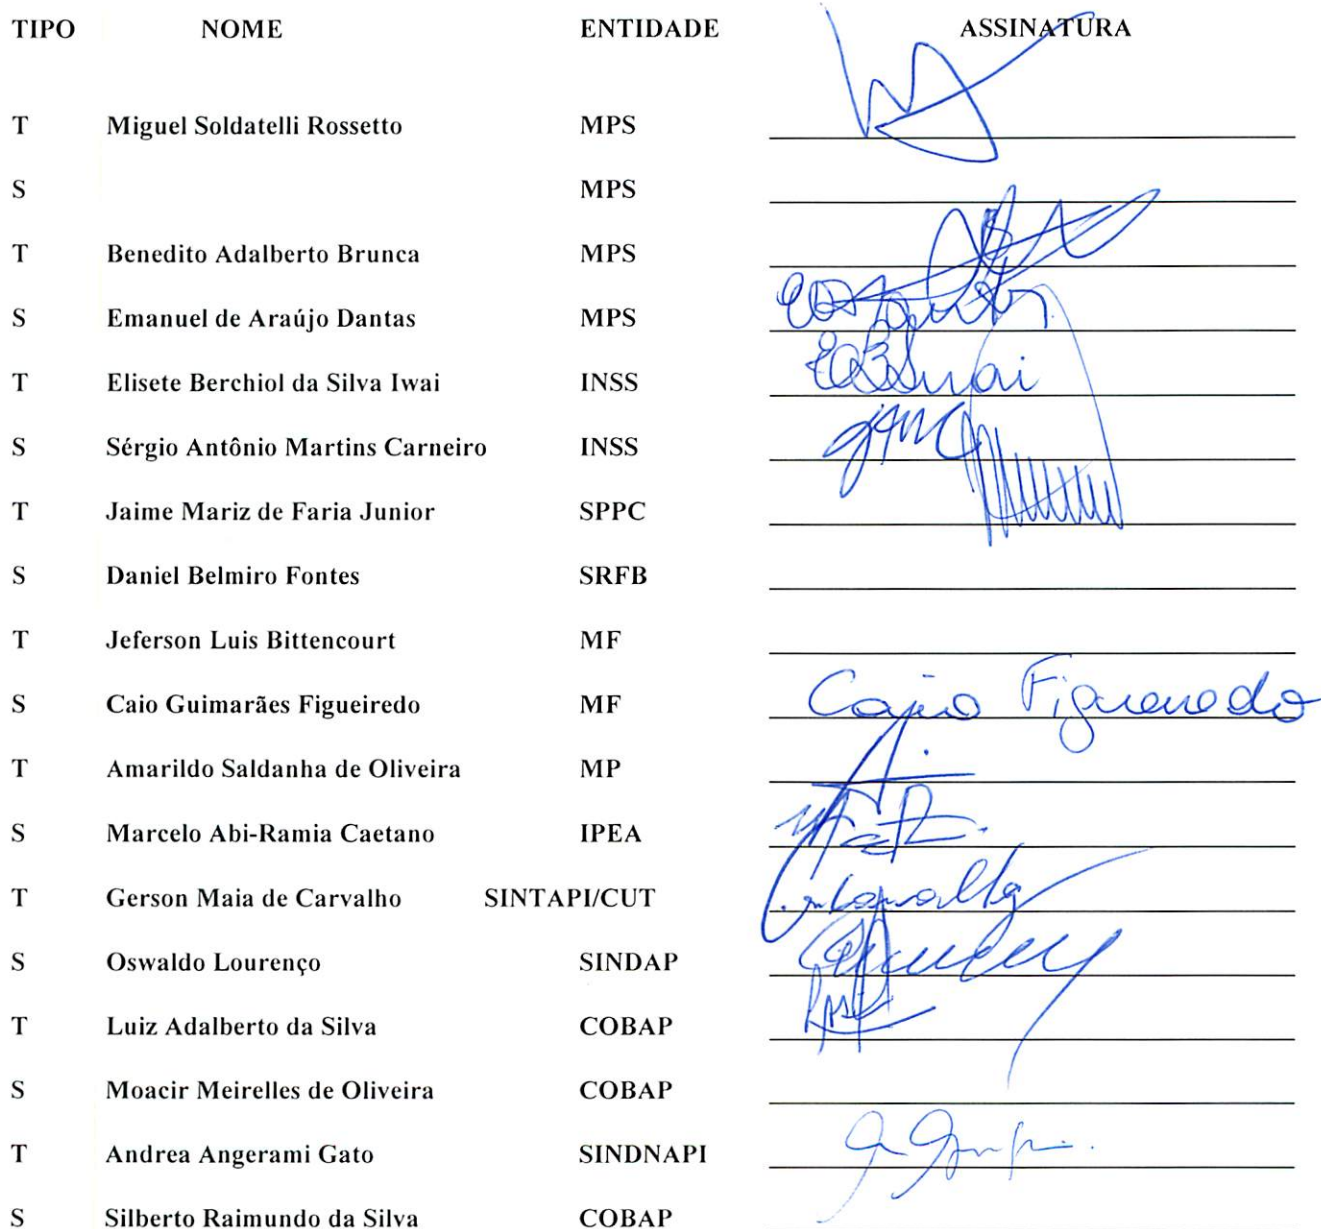 TIPO NOME ENTIDADE ASSINATURA
T Miguel Soldatelli Rossetto MPS
S MPS
T Benedito Adalberto Brunca MPS
S Emanuel de Araújo Dantas MPS
T Elisete Berchiol da Silva Iwai INSS
S Sérgio Antônio Martins Carneiro INSS
T Jaime Mariz de Faria Junior SPPC
S Daniel Belmiro Fontes SRFB
T Jeferson Luis Bittencourt MF
S Caio Guimarães Figueiredo MF Caio Figueiredo
T Amarildo Saldanha de Oliveira MP
S Marcelo Abi-Ramia Caetano IPEA
T Gerson Maia de Carvalho SINTAPI/CUT
S Oswaldo Lourenço SINDAP
T Luiz Adalberto da Silva COBAP
S Moacir Meirelles de Oliveira COBAP
T Andrea Angerami Gato SINDNAPI
S Silberto Raimundo da Silva COBAP